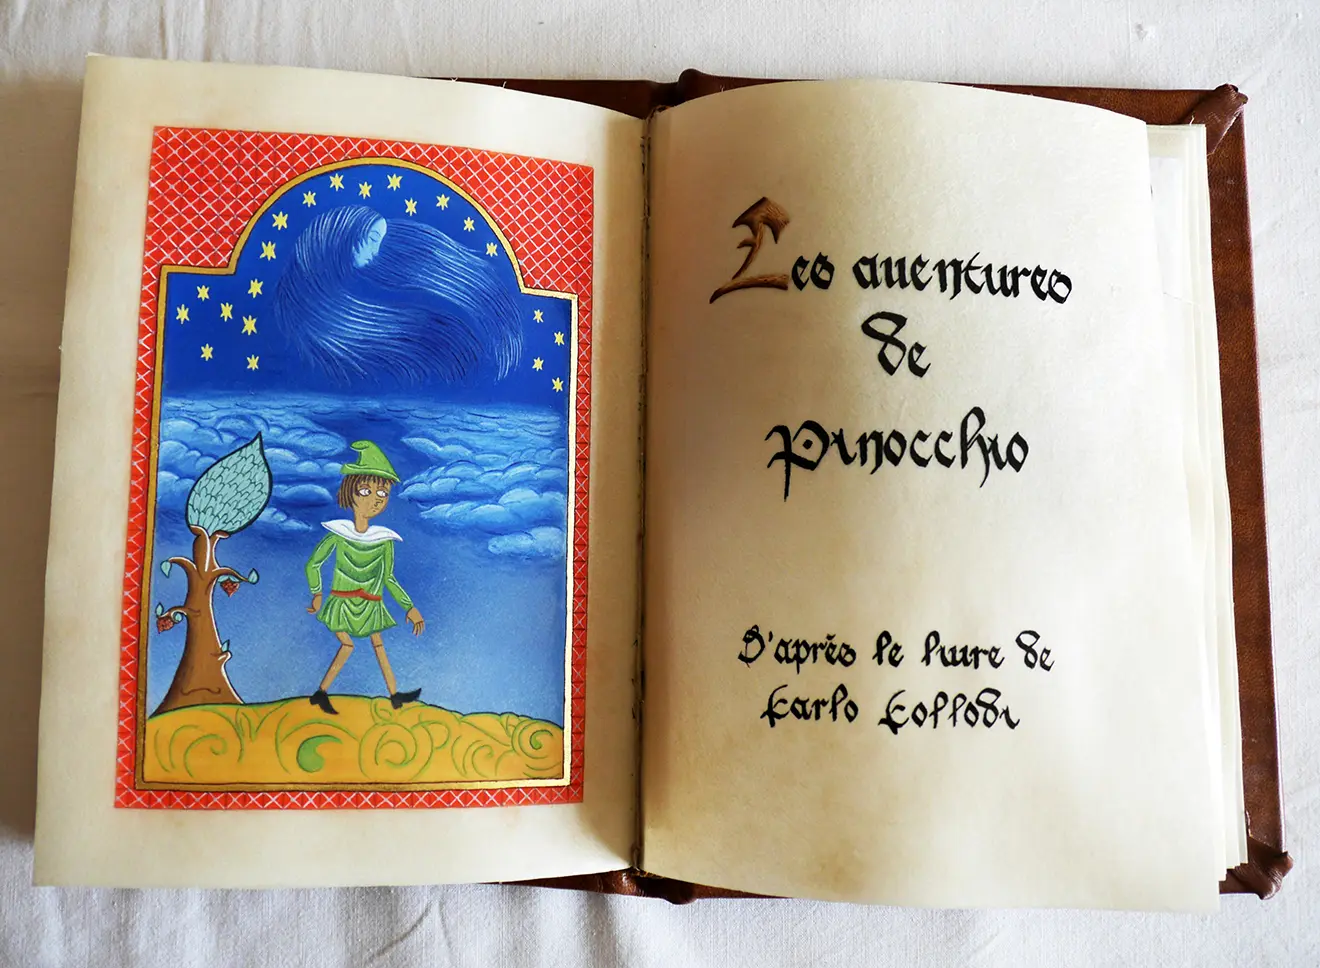 Les aventures
de
Pinocchio
D'après le livre de
Carlo Collodi